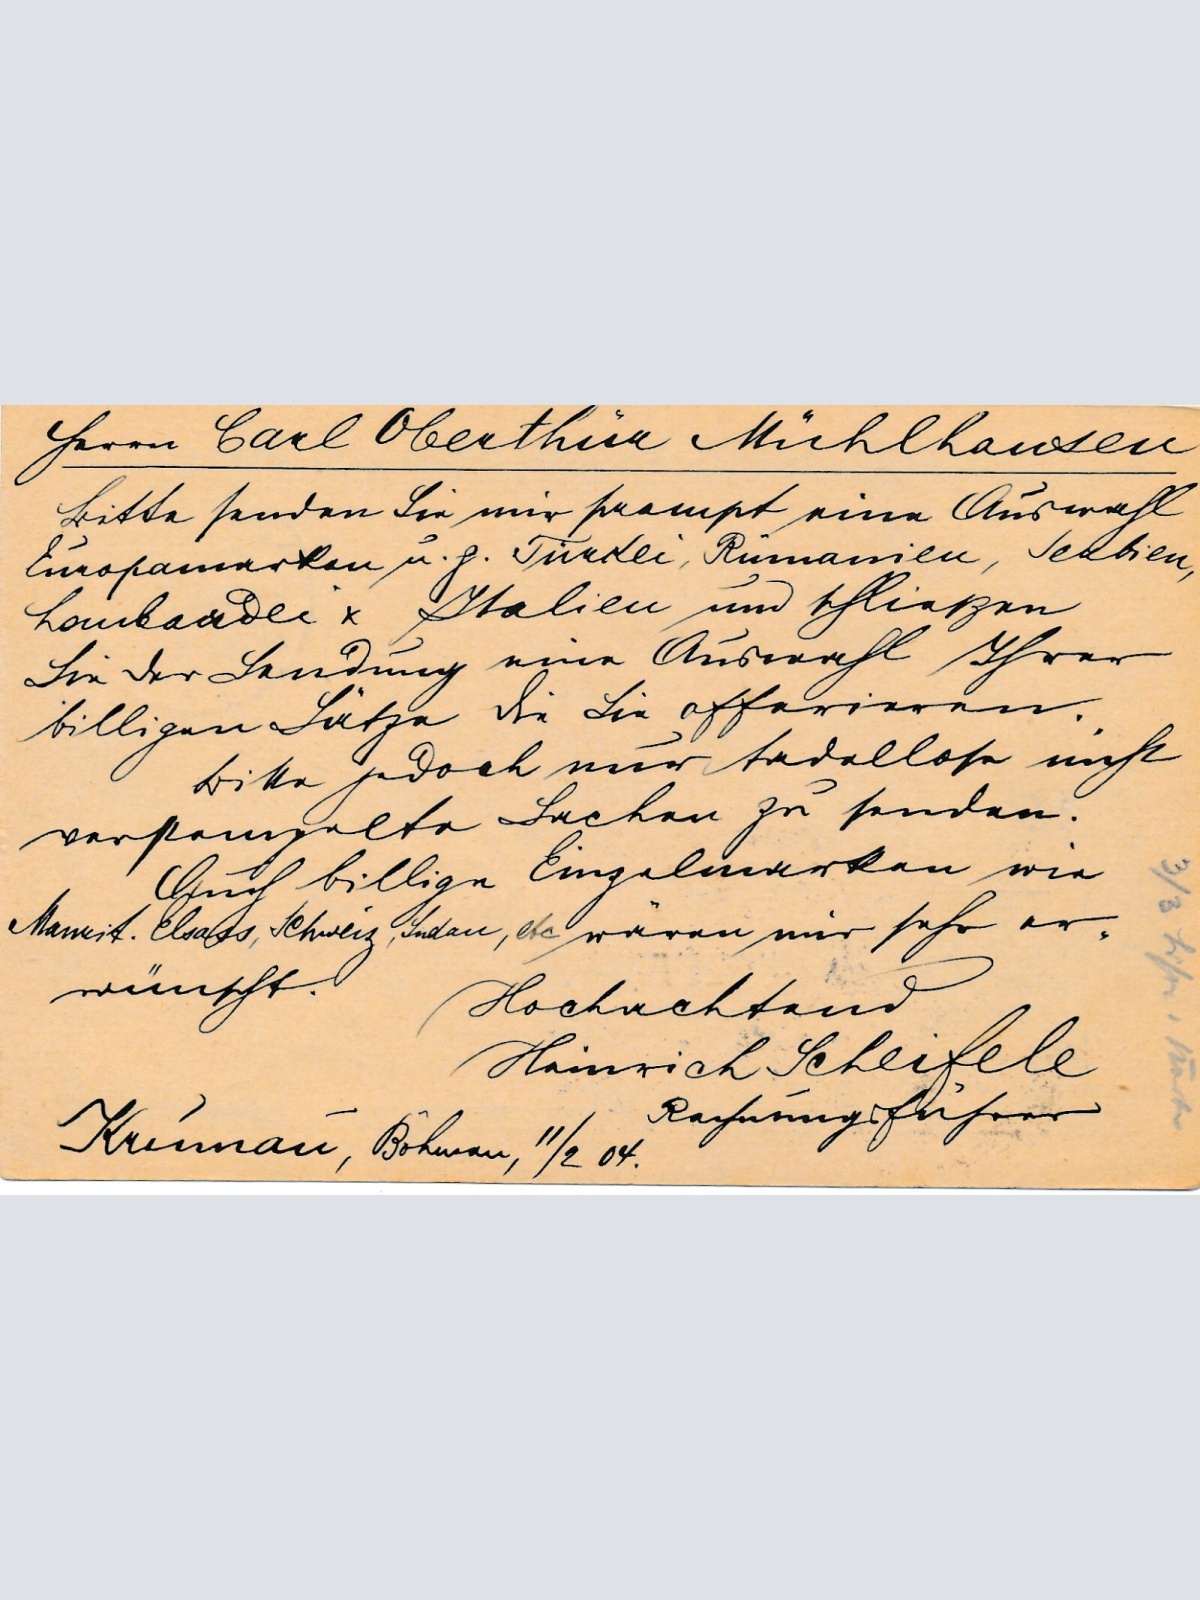 Herrn Carl Oberthür Mühlhausen
Bitte senden Sie mir prompt eine Auswahl
Europamarken u. z. Türkei, Rumänien, Serbien,
Lombardei x Italien und schließen
Sie der Sendung eine Auswahl Ihrer
billigen Sätze die Sie offerieren.
Bitte jedoch nur tadellose nicht
verstempelte Sachen zu senden.
Auch billige Einzelmarken wie
Maurit. Elsass, Schweiz, Sudan, etc wären mir sehr er-
wünscht.
Hochachtend
Heinrich Scheifele
Rechnungsführer
Krumau, Böhmen, 11/2 04.
3/3